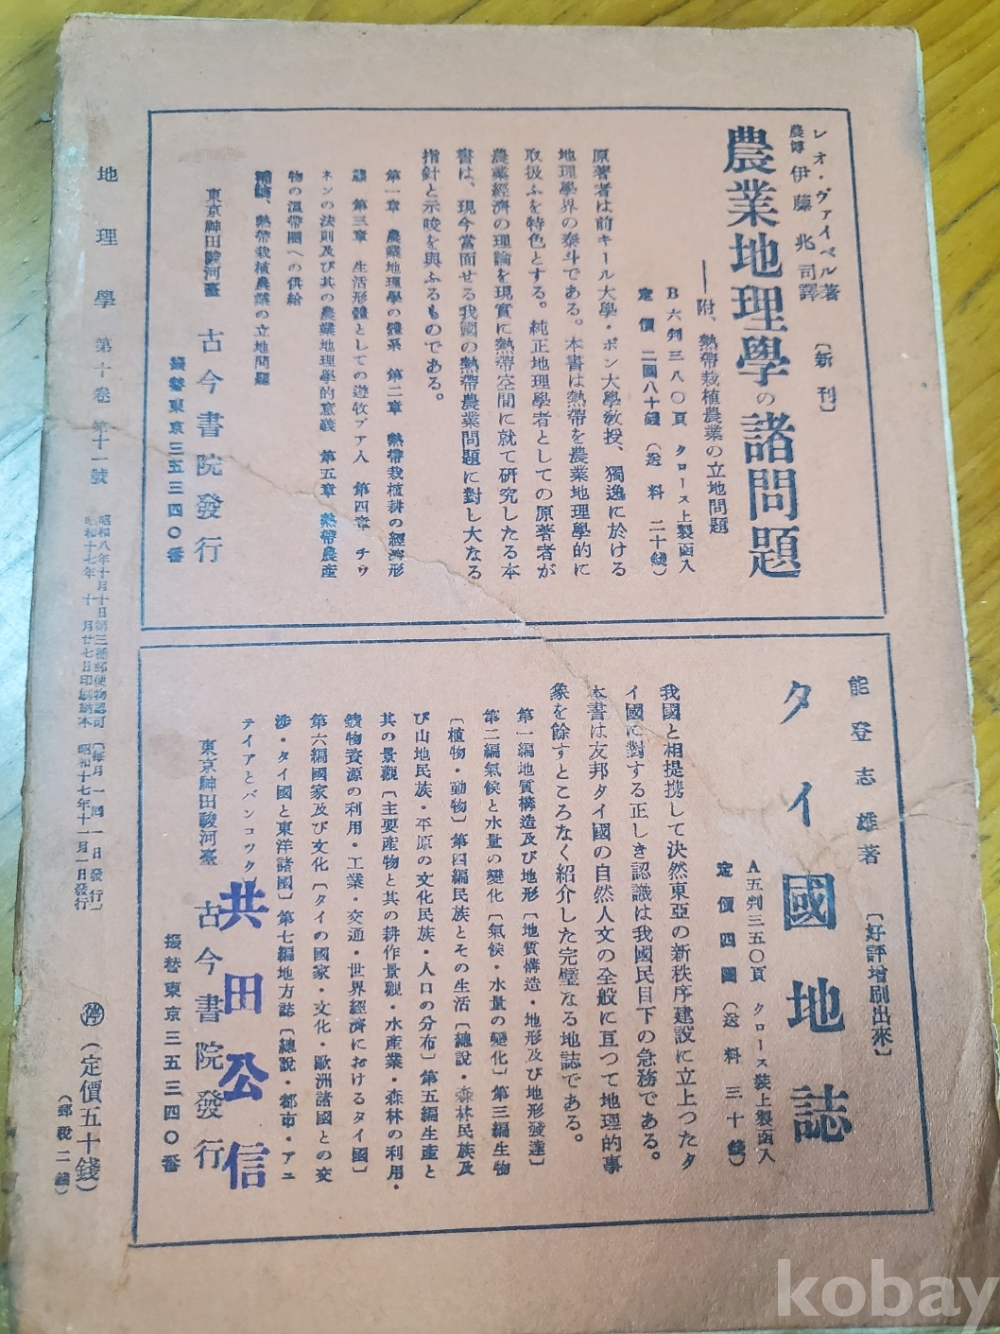 レオ・ヴァイベル著
農博 伊藤兆司譯
〔新刊〕
農業地理學の諸問題
――附、熱帶栽植農業の立地問題
B六判三八〇頁 クロース上製函入
定價 二圓八十錢(送料 二十錢)
原著者は前キール大學・ボン大學敎授、獨逸に於ける
地理學界の泰斗である。本書は熱帶を農業地理學的に
取扱ふを特色とする。純正地理學者としての原著者が
農業經濟の理論を現實に熱帶空間に就て硏究したる本
書は、現今當面せる我國の熱帶農業問題に對し大なる
指針と示唆を與ふるものである。
第一章 農業地理學の體系 第二章 熱帶栽植耕の經濟形
體 第三章 生活形體としての遊牧フア人 第四章 チウ
ネンの法則及び其の農業地理學的意義 第五章 熱帶農產
物の溫帶圈への供給
補論、熱帶栽植農業の立地問題
東京神田駿河臺 古今書院發行
振替東京三五三四〇番
能登志雄著
〔好評增刷出來〕
タイ國地誌
A五判三五〇頁 クロース裝上製函入
定價 四圓(送料 三十錢)
我國と相提携して決然東亞の新秩序建設に立上つたタ
イ國に對する正しき認識は我國民目下の急務である。
本書は友邦タイ國の自然人文の全般に亙つて地理的事
象を餘すところなく紹介した完璧なる地誌である。
第一編地質構造及び地形〔地質構造・地形及び地形發達〕
第二編氣候と水量の變化〔氣候・水量の變化〕第三編生物
〔植物・動物〕第四編民族とその生活〔總說・森林民族及
び山地民族・平原の文化民族・人口の分布〕第五編生產と
其の景觀〔主要產物と其の耕作景觀・水產業・森林の利用・
鑛物資源の利用・工業・交通・世界經濟におけるタイ國〕
第六編國家及び文化〔タイの國家・文化・歐洲諸國との交
涉・タイ國と東洋諸國〕第七編地方誌〔總說・都市・アユ
テイアとバンコツク〕
共田公信
東京神田駿河臺 古今書院發行
振替東京三五三四〇番
地理學 第十卷 第十一號
昭和八年十月十日第三種郵便物認可(每月一回一日發行)
昭和十七年十月廿七日印刷納本 昭和十七年十一月一日發行
停(定價五十錢)
(郵稅二錢)
kobay